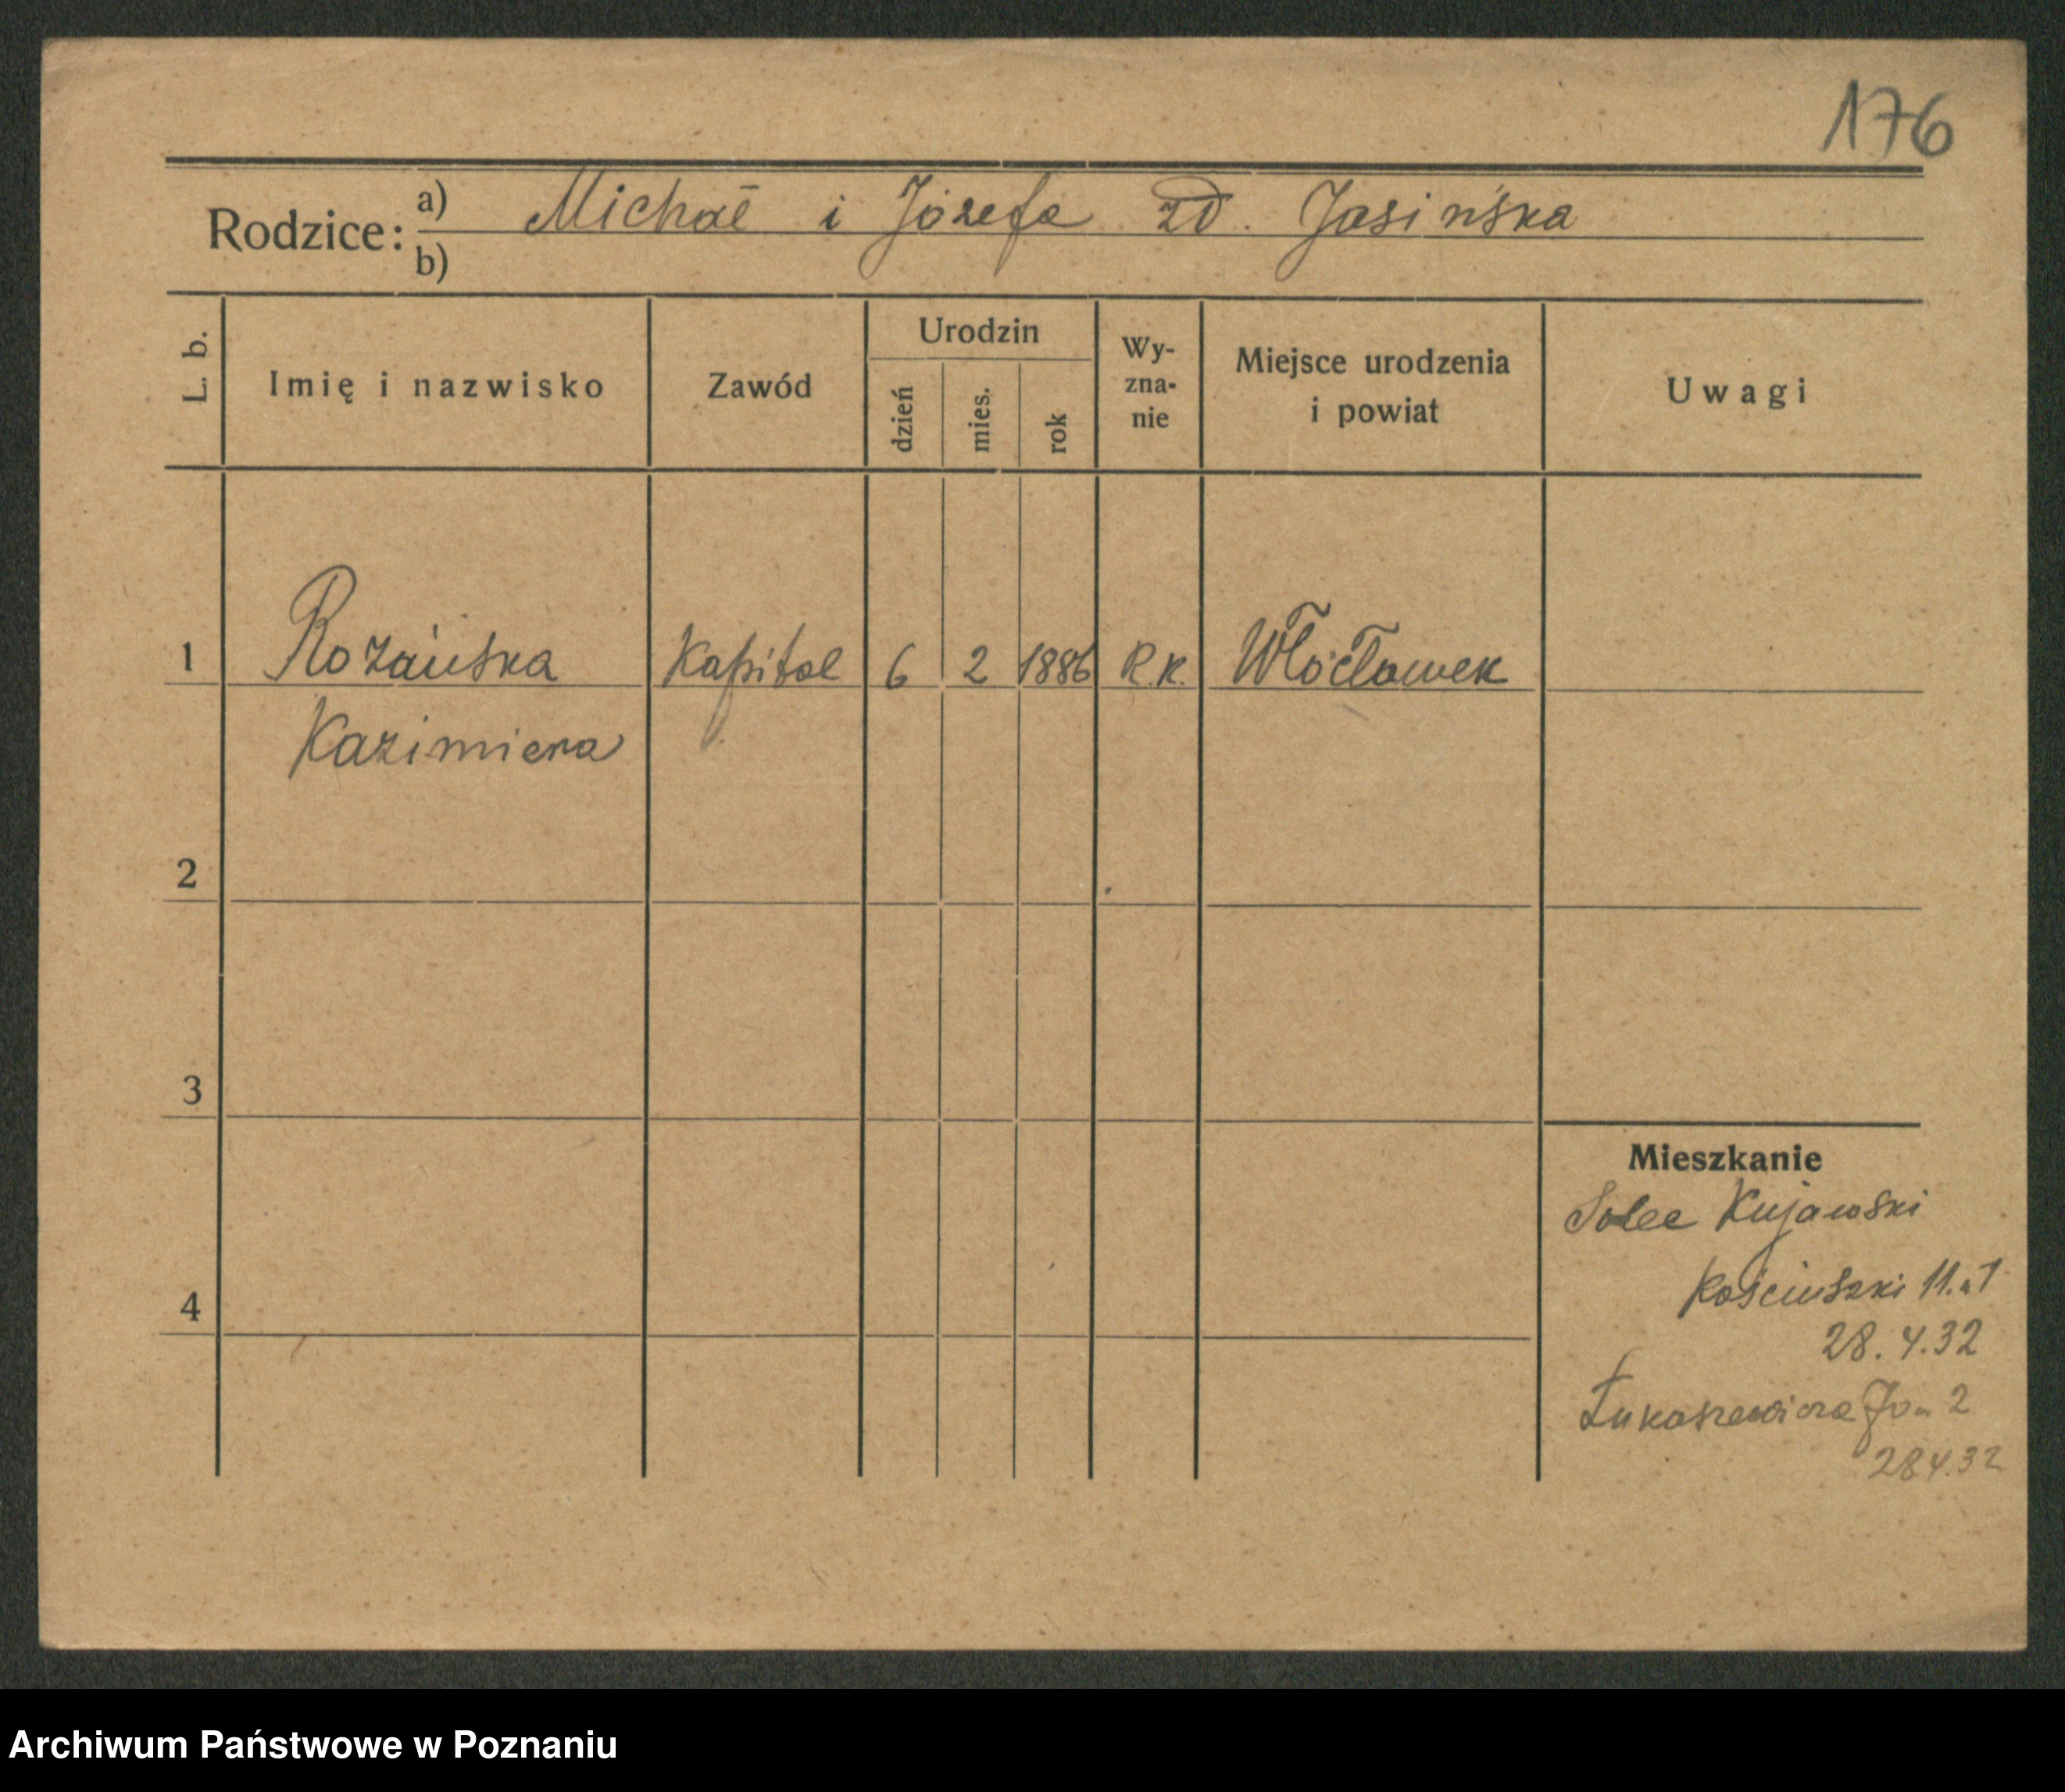 176
Rodzice: a) Michał i Józefa zd. Jasińska
b)
L. b. Imię i nazwisko Zawód Urodzin dzień mies. rok Wy-zna-nie Miejsce urodzenia i powiat Uwagi
1 Rożańska Kapital 6 2 1886 R.K. Włocławek
Kazimiera
2
3
4
Mieszkanie
Solec Kujawski
Kościuszki 11.
28.4.32
Łukaszewicza 2
28 4.32
Archiwum Państwowe w Poznaniu